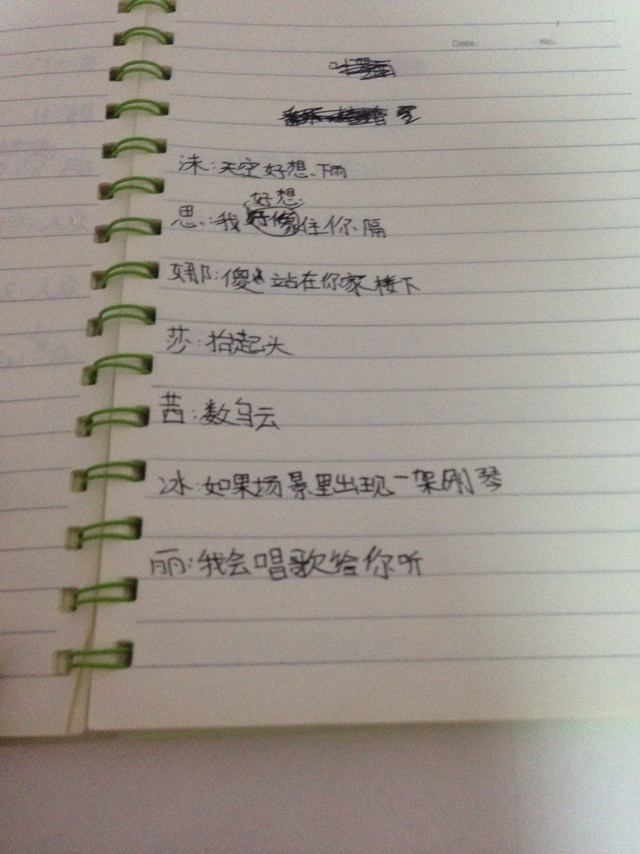 Date. No.
沫:天空好想.下雨
好想
思:我住你.隔
娜:傻站在你家楼下
莎:抬起头
茜:数乌云
冰:如果场景里出现一架刚琴
丽:我会唱歌给你听